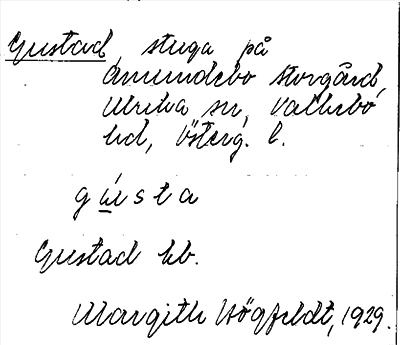 Gustad, stuga på
Amundebo storgård,
Ulrika sn, Valkebo
hd, Österg. l.
gústa
Gustad hb.
Margith Högfeldt, 1929.